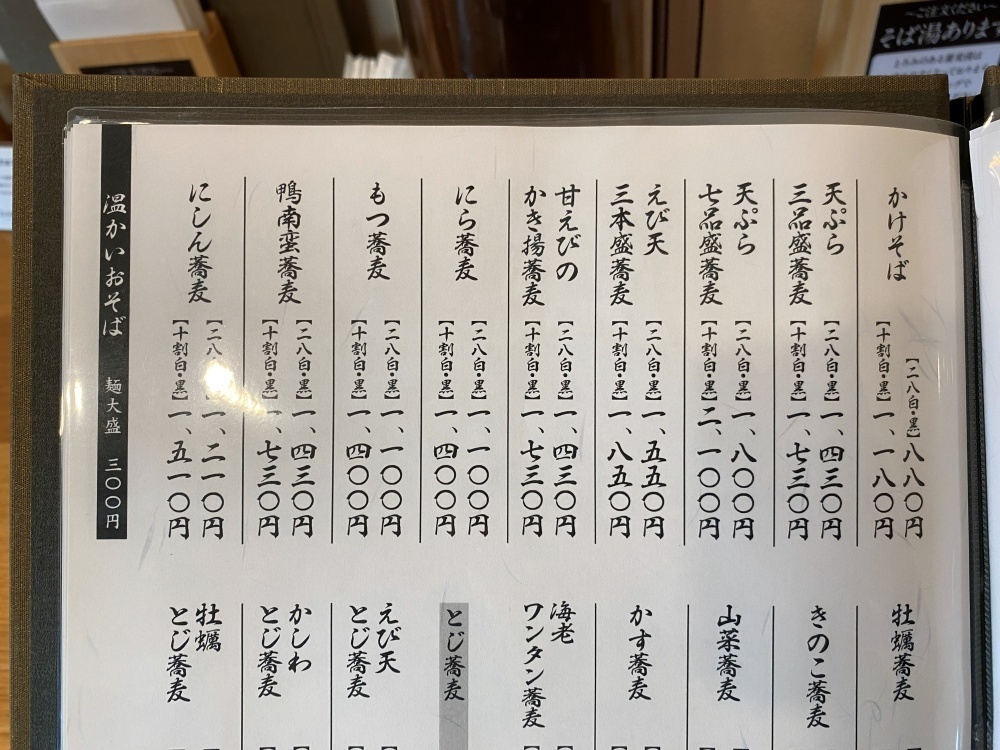 〜ご注文ください〜
そば湯あります
かけそば
【二八白・黒】八八〇円
【十割白・黒】一、一八〇円
天ぷら
三品盛蕎麦
【二八白・黒】一、四三〇円
【十割白・黒】一、七三〇円
天ぷら
七品盛蕎麦
【二八白・黒】一、八〇〇円
【十割白・黒】二、一〇〇円
えび天
三本盛蕎麦
【二八白・黒】一、五五〇円
【十割白・黒】一、八五〇円
甘えびの
かき揚蕎麦
【二八白・黒】一、四三〇円
【十割白・黒】一、七三〇円
にら蕎麦
【二八白・黒】一、一〇〇円
【十割白・黒】一、四〇〇円
もつ蕎麦
【二八白・黒】一、一〇〇円
【十割白・黒】一、四〇〇円
鴨南蛮蕎麦
【二八白・黒】一、四三〇円
【十割白・黒】一、七三〇円
にしん蕎麦
【二八白・黒】一、二一〇円
【十割白・黒】一、五一〇円
温かいおそば 麺大盛 三〇〇円
牡蠣蕎麦
きのこ蕎麦
山菜蕎麦
かす蕎麦
海老
ワンタン蕎麦
とじ蕎麦
えび天
とじ蕎麦
かしわ
とじ蕎麦
牡蠣
とじ蕎麦